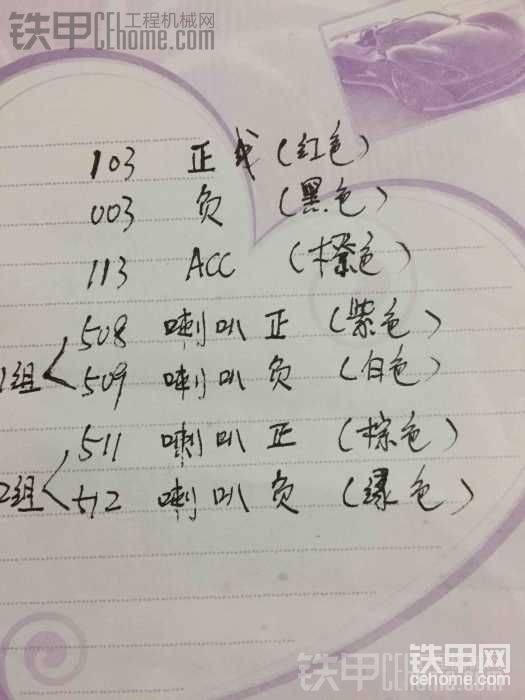 铁甲工程机械网
CEhome.com
103 正戈(红色)
003 负 (黑色)
113 ACC (棕色)
1组
508 喇叭正 (紫色)
509 喇叭负 (白色)
2组
511 喇叭正 (棕色)
512 喇叭负 (绿色)
铁甲网
cehome.com
铁甲CEhome.com